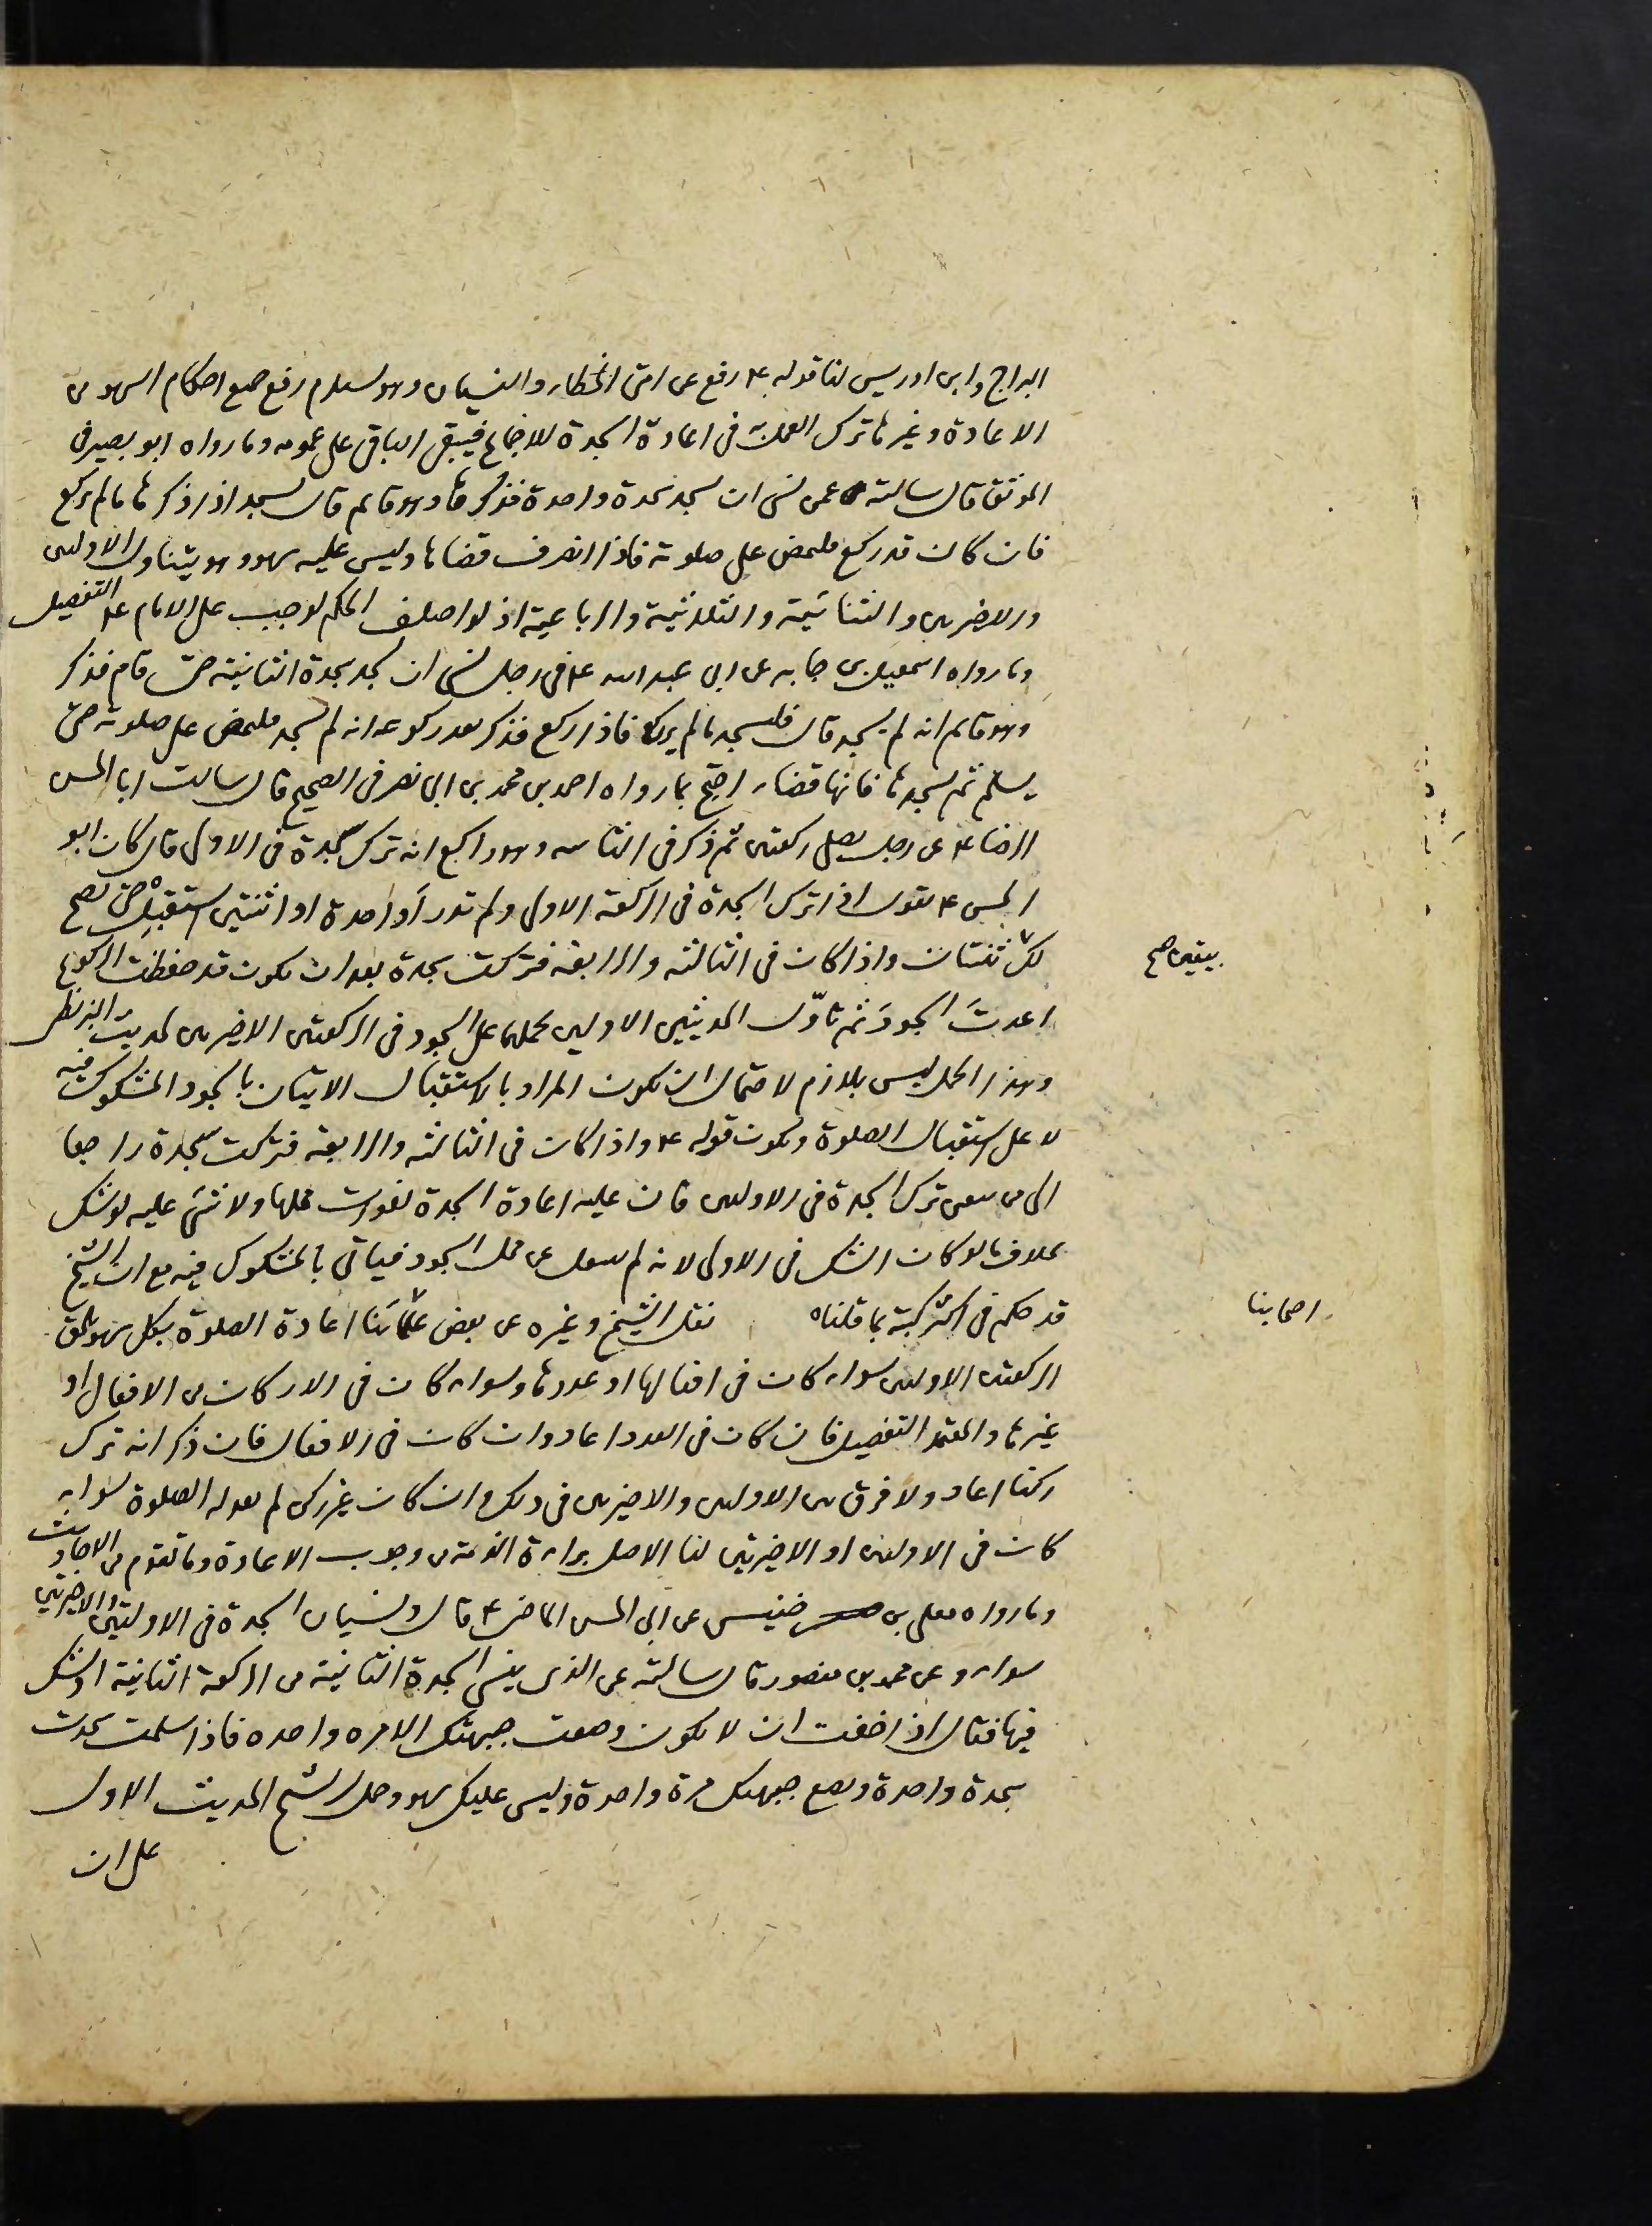 البراج وابن ادريس لنا قوله ع رفع عن امتى الخطاء والنسيان وهو يستلزم رفع جميع احكام السهو من
الاعادة وغيرها ترك العمل به فى اعادة السجدة للاجماع فيبقى الباقى على عمومه وما رواه ابو بصير فى
الموثق قال سالته عمن نسى ان يسجد سجدة واحدة فذكرها وهو قائم قال يسجد اذا ذكرها ما لم يركع
فان كان قد ركع فليمض على صلوته فاذا انصرف قضاها وليس عليه سهو وهو يتناول الاوليين
والاخريين والثنائية والثلاثية والرباعية اذ لو اختلف الحكم لوجب على الامام ع التفصيل
وما رواه اسمعيل بن جابر عن ابى عبد الله ع فى رجل نسى ان يسجد سجدة الثانية حتى قام فذكر
وهو قائم انه لم يسجد قال فليسجد ما لم يركع فاذا ركع فذكر بعد ركوعه انه لم يسجد فليمض على صلوته حتى
يسلم ثم يسجدها فانها قضاء احتج بما رواه احمد بن محمد بن ابى نصر فى الصحيح قال سالت ابا الحسن
الرضا ع عن رجل يصلى ركعتين ثم ذكر فى الثانية وهو راكع انه ترك سجدة فى الاولى قال كان ابو
الحسن ع يقول اذا ترك السجدة فى الركعة الاولى ولم تدر أواحدة او اثنتين استقبلْ حتى يصح
لك ثنتان واذا كان فى الثالثة والرابعة فتركت سجدة بعد ان يكون قد حفظت الركوع
بيقين صح
اعدتَ السجودَ ثم تاوّل الحديثين الاوليين بحملهما على السجود فى الركعتين الاخيرتين لحديث البزنطى
وهذا الحمل ليس بلازم لاحتمال ان يكون المراد بالاستقبال الاتيان بالسجود المشكوك فيه
لا على استقبال الصلوة ويكون قوله ع واذا كان فى الثالثة والرابعة فتركت سجدة راجعا
الى من تيقن ترك السجدة فى الاوليين فان عليه اعادة السجدة لفوات محلها ولا شئ عليه لو شك
بخلاف ما لو كان الشك فى الاولى لانه لم ينتقل عن محل السجود فياتى بالمشكوك فيه مع ان الشيخ
قد حكم فى اكثر كتبه بما قلناه نقل الشيخ وغيره عن بعض علمائنا اعادة الصلوة بكل سهو يلحق
اصحابنا
الركعتين الاوليين سواء كان فى افعالها او عددها وسواء كان فى الاركان من الافعال او
غيرها والمعتمد التفصيل فان كان فى العدد اعاد وان كان فى الافعال فان ذكر انه ترك
ركنا اعاد ولا فرق بين الاوليين والاخيرتين فى ذلك وان كان غير ركن لم يعد الصلوة سواء
كان فى الاوليين او الاخيرتين لنا الاصل براءة الذمة من وجوب الاعادة وما تقدم من الاحاديث
وما رواه معلى بن خنيس عن ابى الحسن الماضى ع قال ونسيان السجدة فى الاولتين والاخيرتين
سواء وعن محمد بن منصور قال سالته عن الذى ينسى السجدة الثانية من الركعة الثانية او يشك
فيها فقال اذا خفت ان لا يكون وضعت جبهتك الا مره واحده فاذا سلمت سجدت
سجدة واحدة وتضع جبهتك مرة واحدة وليس عليك سهو وحمل الشيخ الحديث الاول
على ان